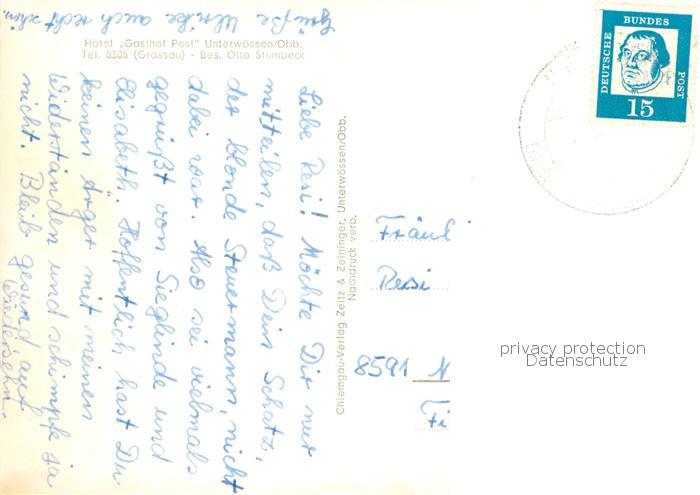 Hotel „Gasthof Post" Unterwössen/Obb.
Tel. 8305 (Grassau) - Bes. Otto Stumbeck
Liebe Resi! Möchte Dir nur
mitteilen, daß Dein Schatz,
der blonde Steuermann, nicht
dabei war. Also sei vielmals
gegrüßt von Sieglinde und
Elisabeth. Hoffentlich hast Du
keinen Ärger mit meinen
Widerständen und schimpfe ja
nicht. Bleib gesund, auf
Wiedersehn.
Grüße Ulrike auch recht schön.
Chiemgau-Verlag Zeitz & Zeininger, Unterwössen/Obb.
Nachdruck verb.
DEUTSCHE
BUNDES
POST
15
Fräul
Resi
8591 N
Fi
privacy protection
Datenschutz